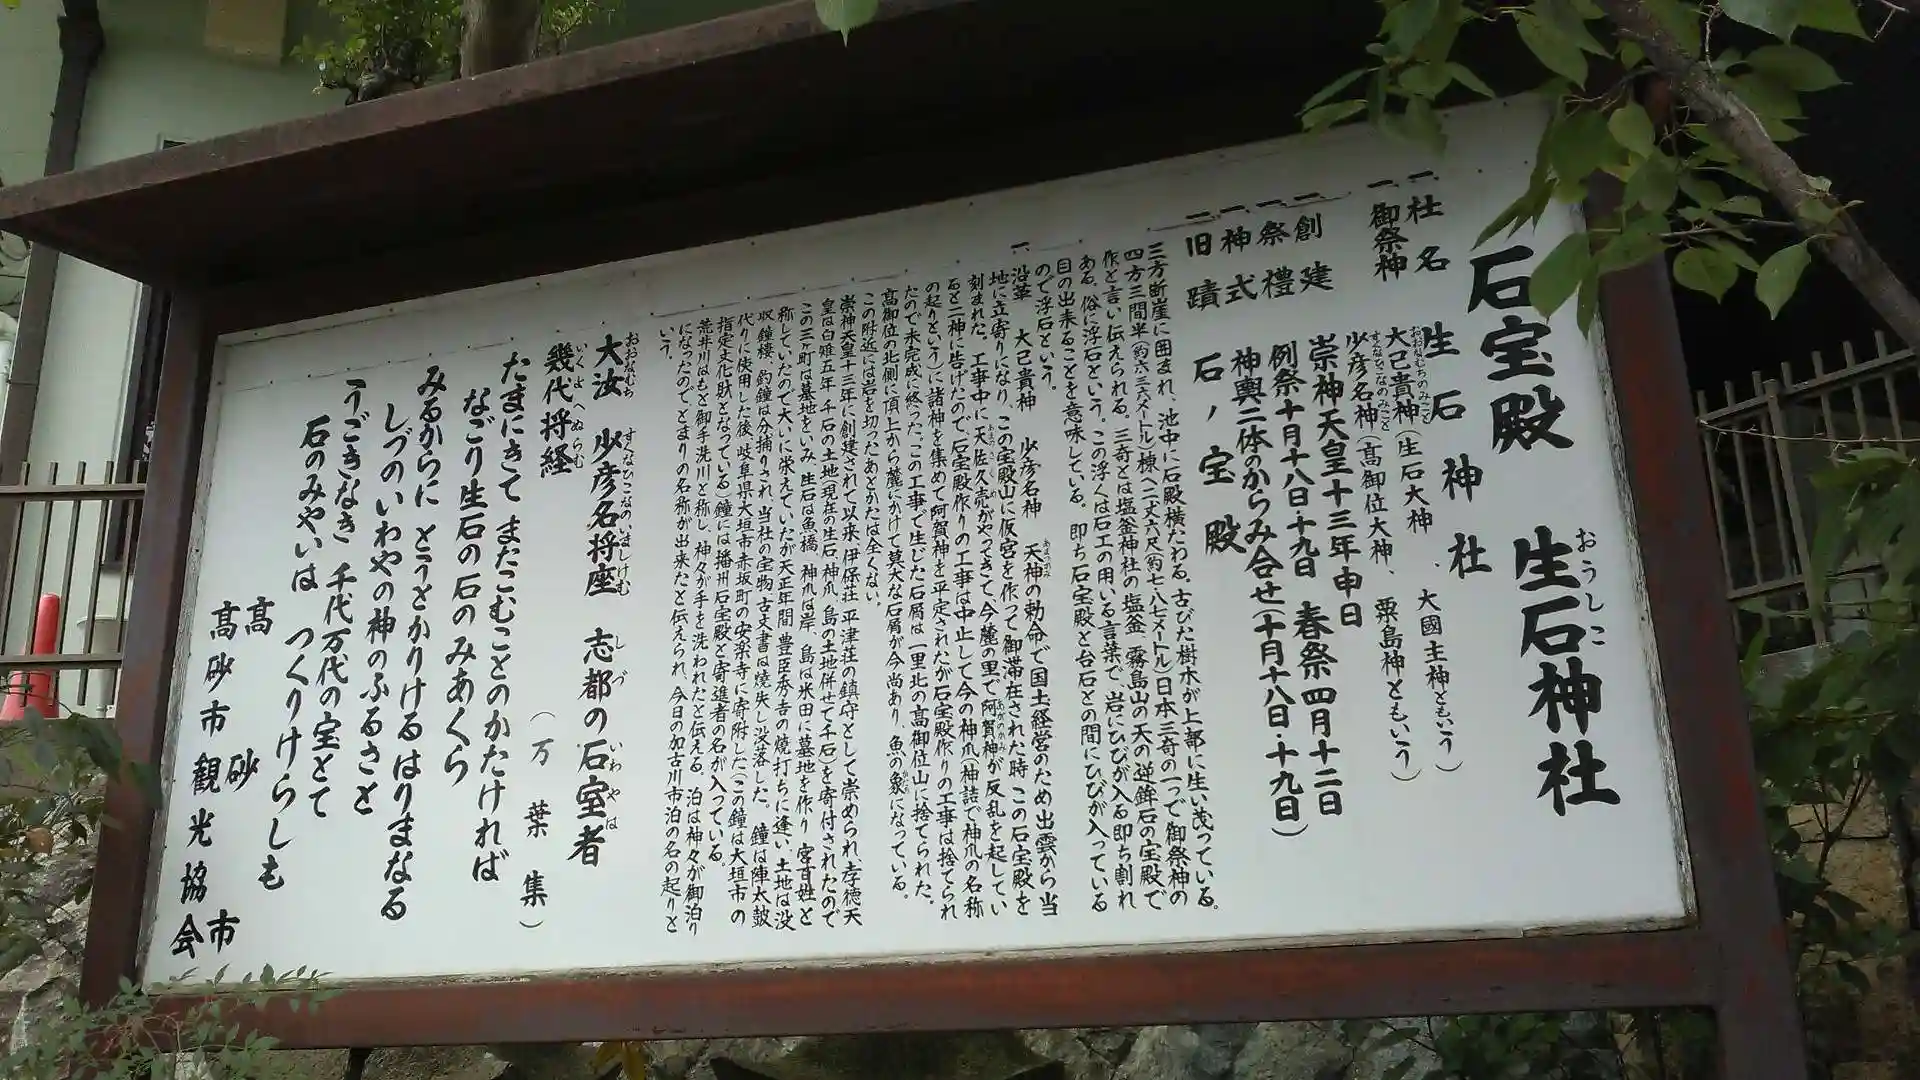 石宝殿 生石神社
おうしこ
一社名 生石神社
一御祭神 大己貴神(生石大神、大國主神ともいう)
おおなむちのみこと
少彦名神(高御位大神、粟島神ともいう)
すくなひこなのみこと
一創建 崇神天皇十三年申日
一祭禮 例祭十月十八日十九日 春祭四月十二日
一神式 神輿二体のからみ合せ(十月十八日・十九日)
一旧蹟 石ノ宝殿
三方断崖に囲まれ、池中に石殿横たわる。古びた樹木が上部に生い茂っている。
四方三間半(約六・三六メートル)棟へ二丈六尺(約七・八七メートル)日本三奇の一つで御祭神の
作と言い伝えられる。三奇とは塩釜神社の塩釜、霧島山の天の逆鉾石の宝殿で
ある。俗に浮石という。この浮くは石工の用いる言葉で、岩にひびが入る即ち割れ
目の出来ることを意味している。即ち石宝殿と台石との間にひびが入っている
ので浮石という。
一沿革 大己貴神 少彦名神 天神の勅命で国土経営のため出雲から当
地に立寄りになり、この宝殿山に仮宮を作って御滞在された時 この石宝殿を
刻まれた。工事中に天佐久売がやってきて、今麓の里で阿賀神が反乱を起してい
ると二神に告げたので、石宝殿作りの工事は中止して今の神爪(神詰で神爪の名称
の起りという)に諸神を集めて阿賀神を平定されたが石宝殿作りの工事は捨てられ
たので未完成に終った。この工事で生じた石屑は一里北の高御位山に捨てられた。
高御位の北側に頂上から麓にかけて莫大な石屑が今尚あり、魚の象になっている。
この附近には岩を切ったあとかたは全くない。
崇神天皇十三年に創建されて以来、伊保荘、平津荘の鎮守として崇められ、孝徳天
皇は白雉五年 千石の土地(現在の生石、神爪、島の土地併せて千石)を寄付されたので
この三ヶ町は墓地をいみ、生石は魚橋、神爪は岸、島は米田に墓地を作り 宮百姓と
称していたので大いに栄えていたが天正年間 豊臣秀吉の焼打ちに逢い、土地は没
収鐘楼、釣鐘は分捕りされ、当社の宝物、古文書は焼失し没落した。鐘は陣太鼓
代りに使用した後、岐阜県大垣市赤坂町の安楽寺に寄附した(この鐘は大垣市の
指定文化財となっている)鐘には播州石宝殿と寄進者の名が入っている。
荒井川はもと御手洗川と称し、神々が手を洗われたと伝える。泊は神々が御泊り
になったのでとまりの名称が出来たと伝えられ、今日の加古川市泊の名の起りと
いう。
大汝 少彦名将座 志都の石室者
おおなむち すくなひこなの いましけむ しづ いわやは
幾代将経
いくよへぬらむ
(万葉集)
たまにきて またこむことのかたければ
なごり生石の石のみあくら
みるからに とうとかりける はりまなる
しづのいわやの神のふるさと
うごきなき 千代万代の宝とて
石のみやいは つくりけらしも
高砂市
高砂市観光協会